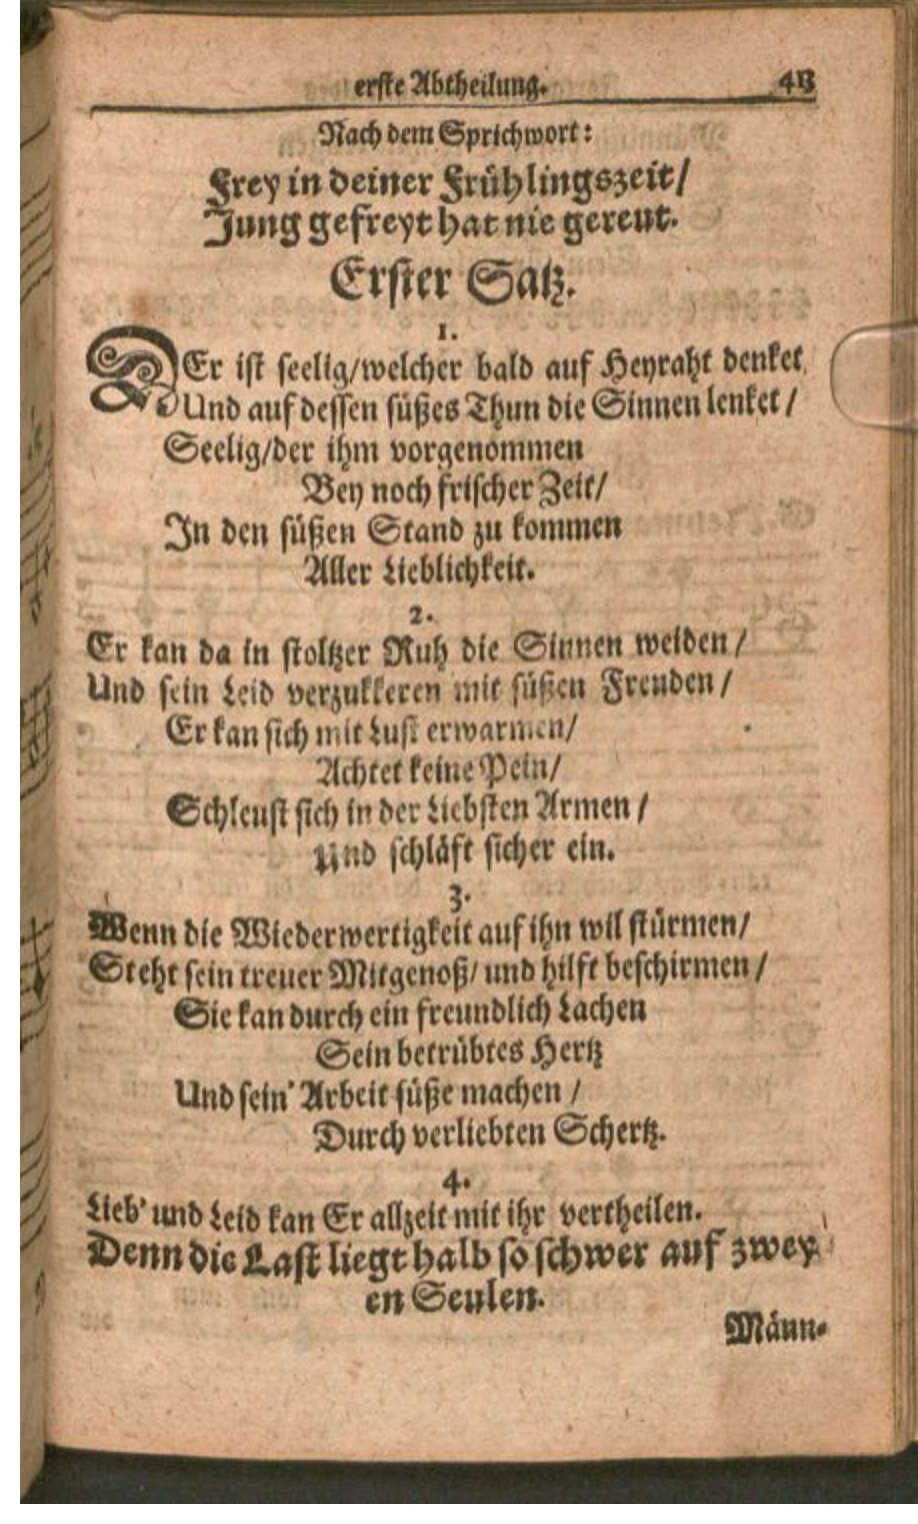 erste Abtheilung. 413
Nach dem Sprichwort:
Frey in deiner Frühlingszeit/
Jung gefreyt hat nie gereut.
Erster Satz.
1.
DEr ist seelig/welcher bald auf Heyraht denket
Und auf dessen süßes Thun die Sinnen lenket/
Seelig/der ihm vorgenommen
Bey noch frischer Zeit/
In den süßen Stand zu kommen
Aller Lieblichkeit.
2.
Er kan da in stoltzer Ruh die Sinnen weiden/
Und sein Leid verzukkeren mit süßen Freuden/
Er kan sich mit Lust erwarmen/
Achtet keine Pein/
Schleust sich in der Liebsten Armen/
Und schläft sicher ein.
3.
Wenn die Wiederwertigkeit auf ihn wil stürmen/
Steht sein treuer Mitgenoß/und hilft beschirmen/
Sie kan durch ein freundlich Lachen
Sein betrübtes Hertz
Und sein' Arbeit süße machen/
Durch verliebten Schertz.
4.
Lieb' und Leid kan Er allzeit mit ihr vertheilen.
Denn die Last liegt halb so schwer auf zwey-
en Seulen.
Männ-